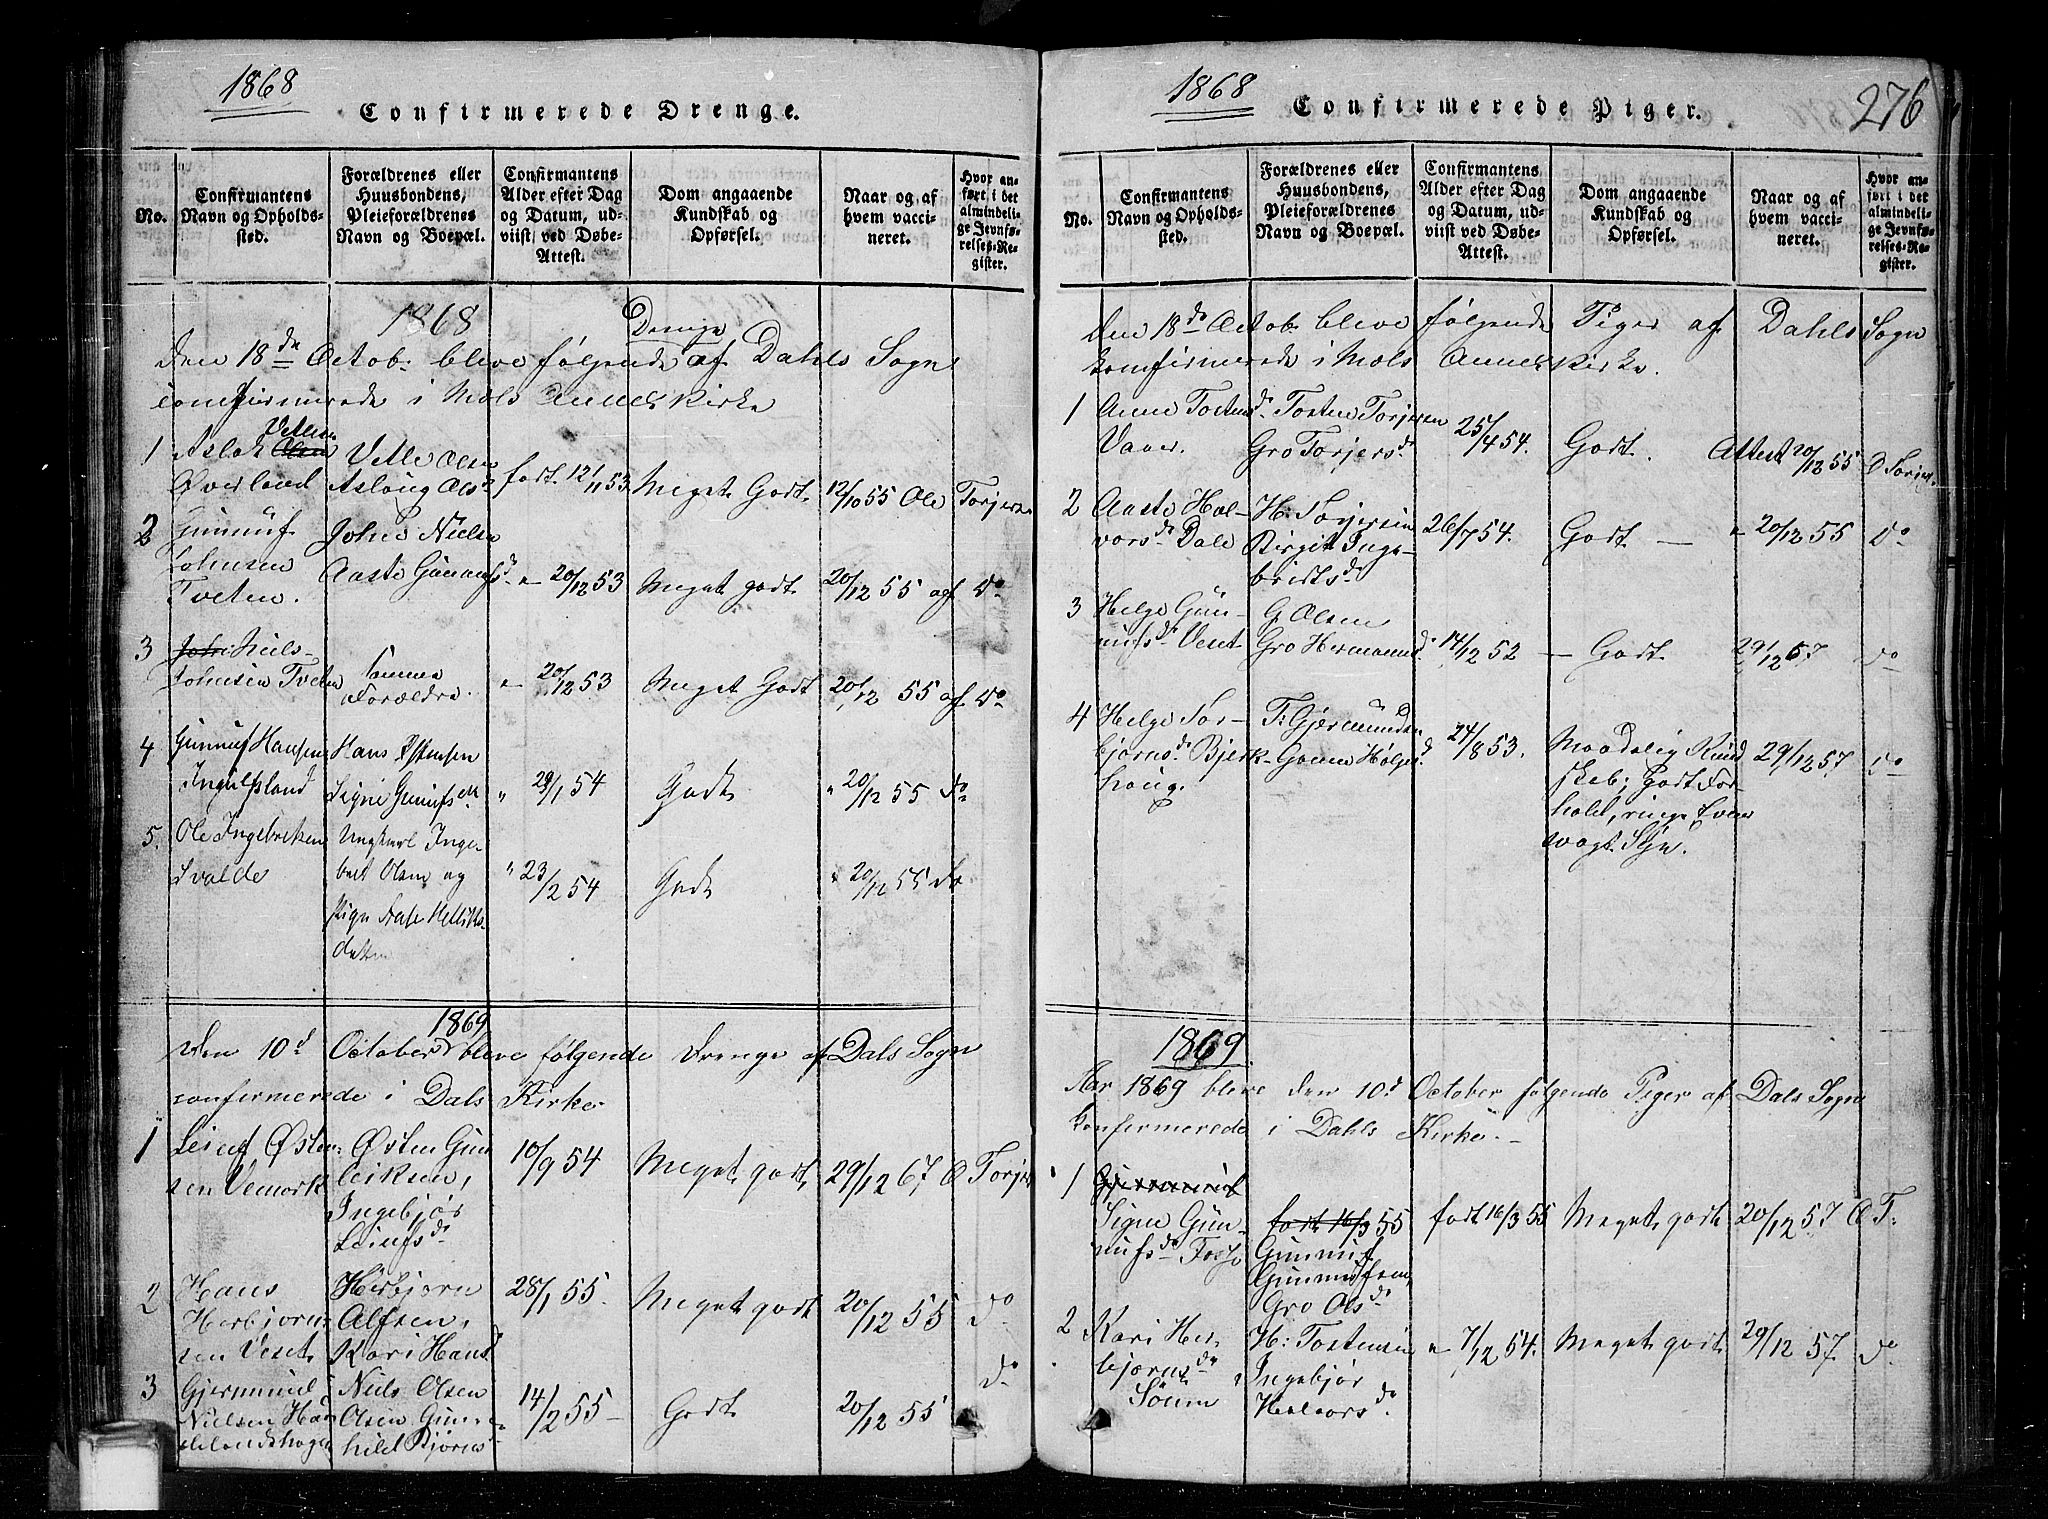 1868
Confirmerede Drenge.
No.
Confirmantens
Navn og Opholds-
sted.
Forældrenes eller
Huusbondens,
Pleieforældrenes
Navn og Boepæl.
Confirmantens
Alder efter Dag
og Datum, ud-
viist ved Døbe-
Attest.
Dom angaaende
Kundskab og
Opførsel.
Naar og af
hvem vacci-
neret.
Hvor an-
ført i det
almindeli-
ge Jevnfø-
relses-Re-
gister.
1868
Drenge
Den 18de Octob. bleve følgende af Dahls Sogn
confirmerede i Mæls Annex Kirke
1 Aslak Olsen Vetlesen
Øverland
Vetle Olsen
Aslaug Olsd
født 12/1 53
Meget Godt
12/10 55 Ole Torjersen
2 Gunnuf
Johnsen
Tveten.
John Nielsen
Aaste Gunnufsd.
" 20/12 53
Meget godt
20/12 55 af Do
3 John Niels
Johnsen Tveten
samme
Forældre.
" 20/12 53
Meget Godt
20/12 55 af Do
4 Gunnuf Hansen
Ingulfsland
Hans Østensen
Signe Gunufsd
" 29/1 54
Godt
" 20/12 55 Do
5. Ole Ingebretsen
Svalde
Ungkarl Inge-
bret Olsen og
Pige Aase
datter
" 23/2 54
Godt
" 20/12 55 Do
1869
Den 10d October bleve følgende Drenge af Dals Sogn
confermerede i Dals Kirke
1 Leiuf Østen-
sen Vemork
Østen Gun-
leiksen,
Ingebjør
Leiufsdr
10/9 54
Meget godt,
29/12 67, O Torjer
2 Hans
Herbjørn-
sen Veset.
Herbjørn
Alfsen,
Kari Hansd
28/1 55.
Meget godt
20/12 55 Do
3 Gjermund
Nielsen
Niels Olsen
Olsen Gun-
hild Bjørnsd
" 14/2 55
Godt
20/12 55 Do
1868
Confirmerede Piger.
276
No.
Confirmantens
Navn og Opholds-
sted.
Forældrenes eller
Huusbondens,
Pleieforældrenes
Navn og Boepæl.
Confirmantens
Alder efter Dag
og Datum, ud-
viist ved Døbe-
Attest.
Dom angaaende
Kundskab og
Opførsel.
Naar og af
hvem vacci-
neret.
Hvor an-
ført i det
almindeli-
ge Jevnfø-
relses-Re-
gister.
Den 18de Octob. bleve følgende Piger af Dahls Sogn
komfirmerede i Mæls Annex Kirke.
1 Anne Tostensd
Vaaer.
Tosten Torjersen
Gro Torjersd
25/4 54.
Godt.
Attest 20/12 55 O Torjer.
2 Aaste Hal-
vorsdr Dale
H: Torjersen
Birgit Inge-
bridtsdr
26/7 54.
Godt —
" 20/12 55 Do
3 Helge Gun-
nufsdr Veset
G. Olsen
Gro Hermannsd.
14/12 52
— Godt.
29/12 57 Do
4 Helge Tor-
bjørnsdr Bjerk-
haug.
T: Gjermundsen
Gonne Holjesd
24/8 53.
Maadelig Kund-
skab; Godt For-
hold, ringe Evner
svagt Syn.
29/12 57. Do
1869
Aar 1869 bleve den 10d October følgende Piger af Dals Sogn
konfermerede i Dahls Kirke.
1 Gjermund
Signe Gun-
nufsdr Fosso
født 16/3 55
Gunnuf
Gunnufsen,
Gro Olsdr
født 16/3 55
Meget godt
20/12 57 O T:
2 Kari Her-
bjørnsdr
Søum
H: Tostensen
Ingebjør
Halvorsdr
" 7/12 54.
Meget godt
29/12 57. Do